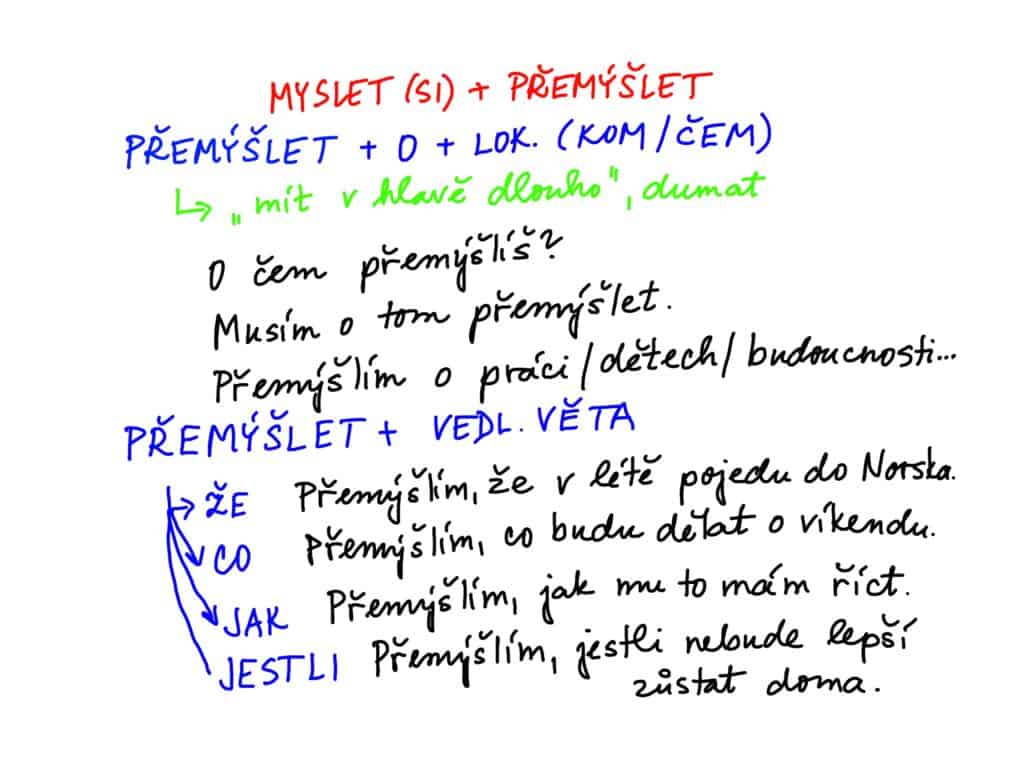 MYSLET (SI) + PŘEMÝŠLET
PŘEMÝŠLET + O + LOK. (KOM/ČEM)
↳ „mít v hlavě dlouho", dumat
O čem přemýšlíš?
Musím o tom přemýšlet.
Přemýšlím o práci/dětech/budoucnosti...
PŘEMÝŠLET + VEDL. VĚTA
ŽE Přemýšlím, že v létě pojedu do Norska.
CO Přemýšlím, co budu dělat o víkendu.
JAK Přemýšlím, jak mu to mám říct.
JESTLI Přemýšlím, jestli nebude lepší
zůstat doma.